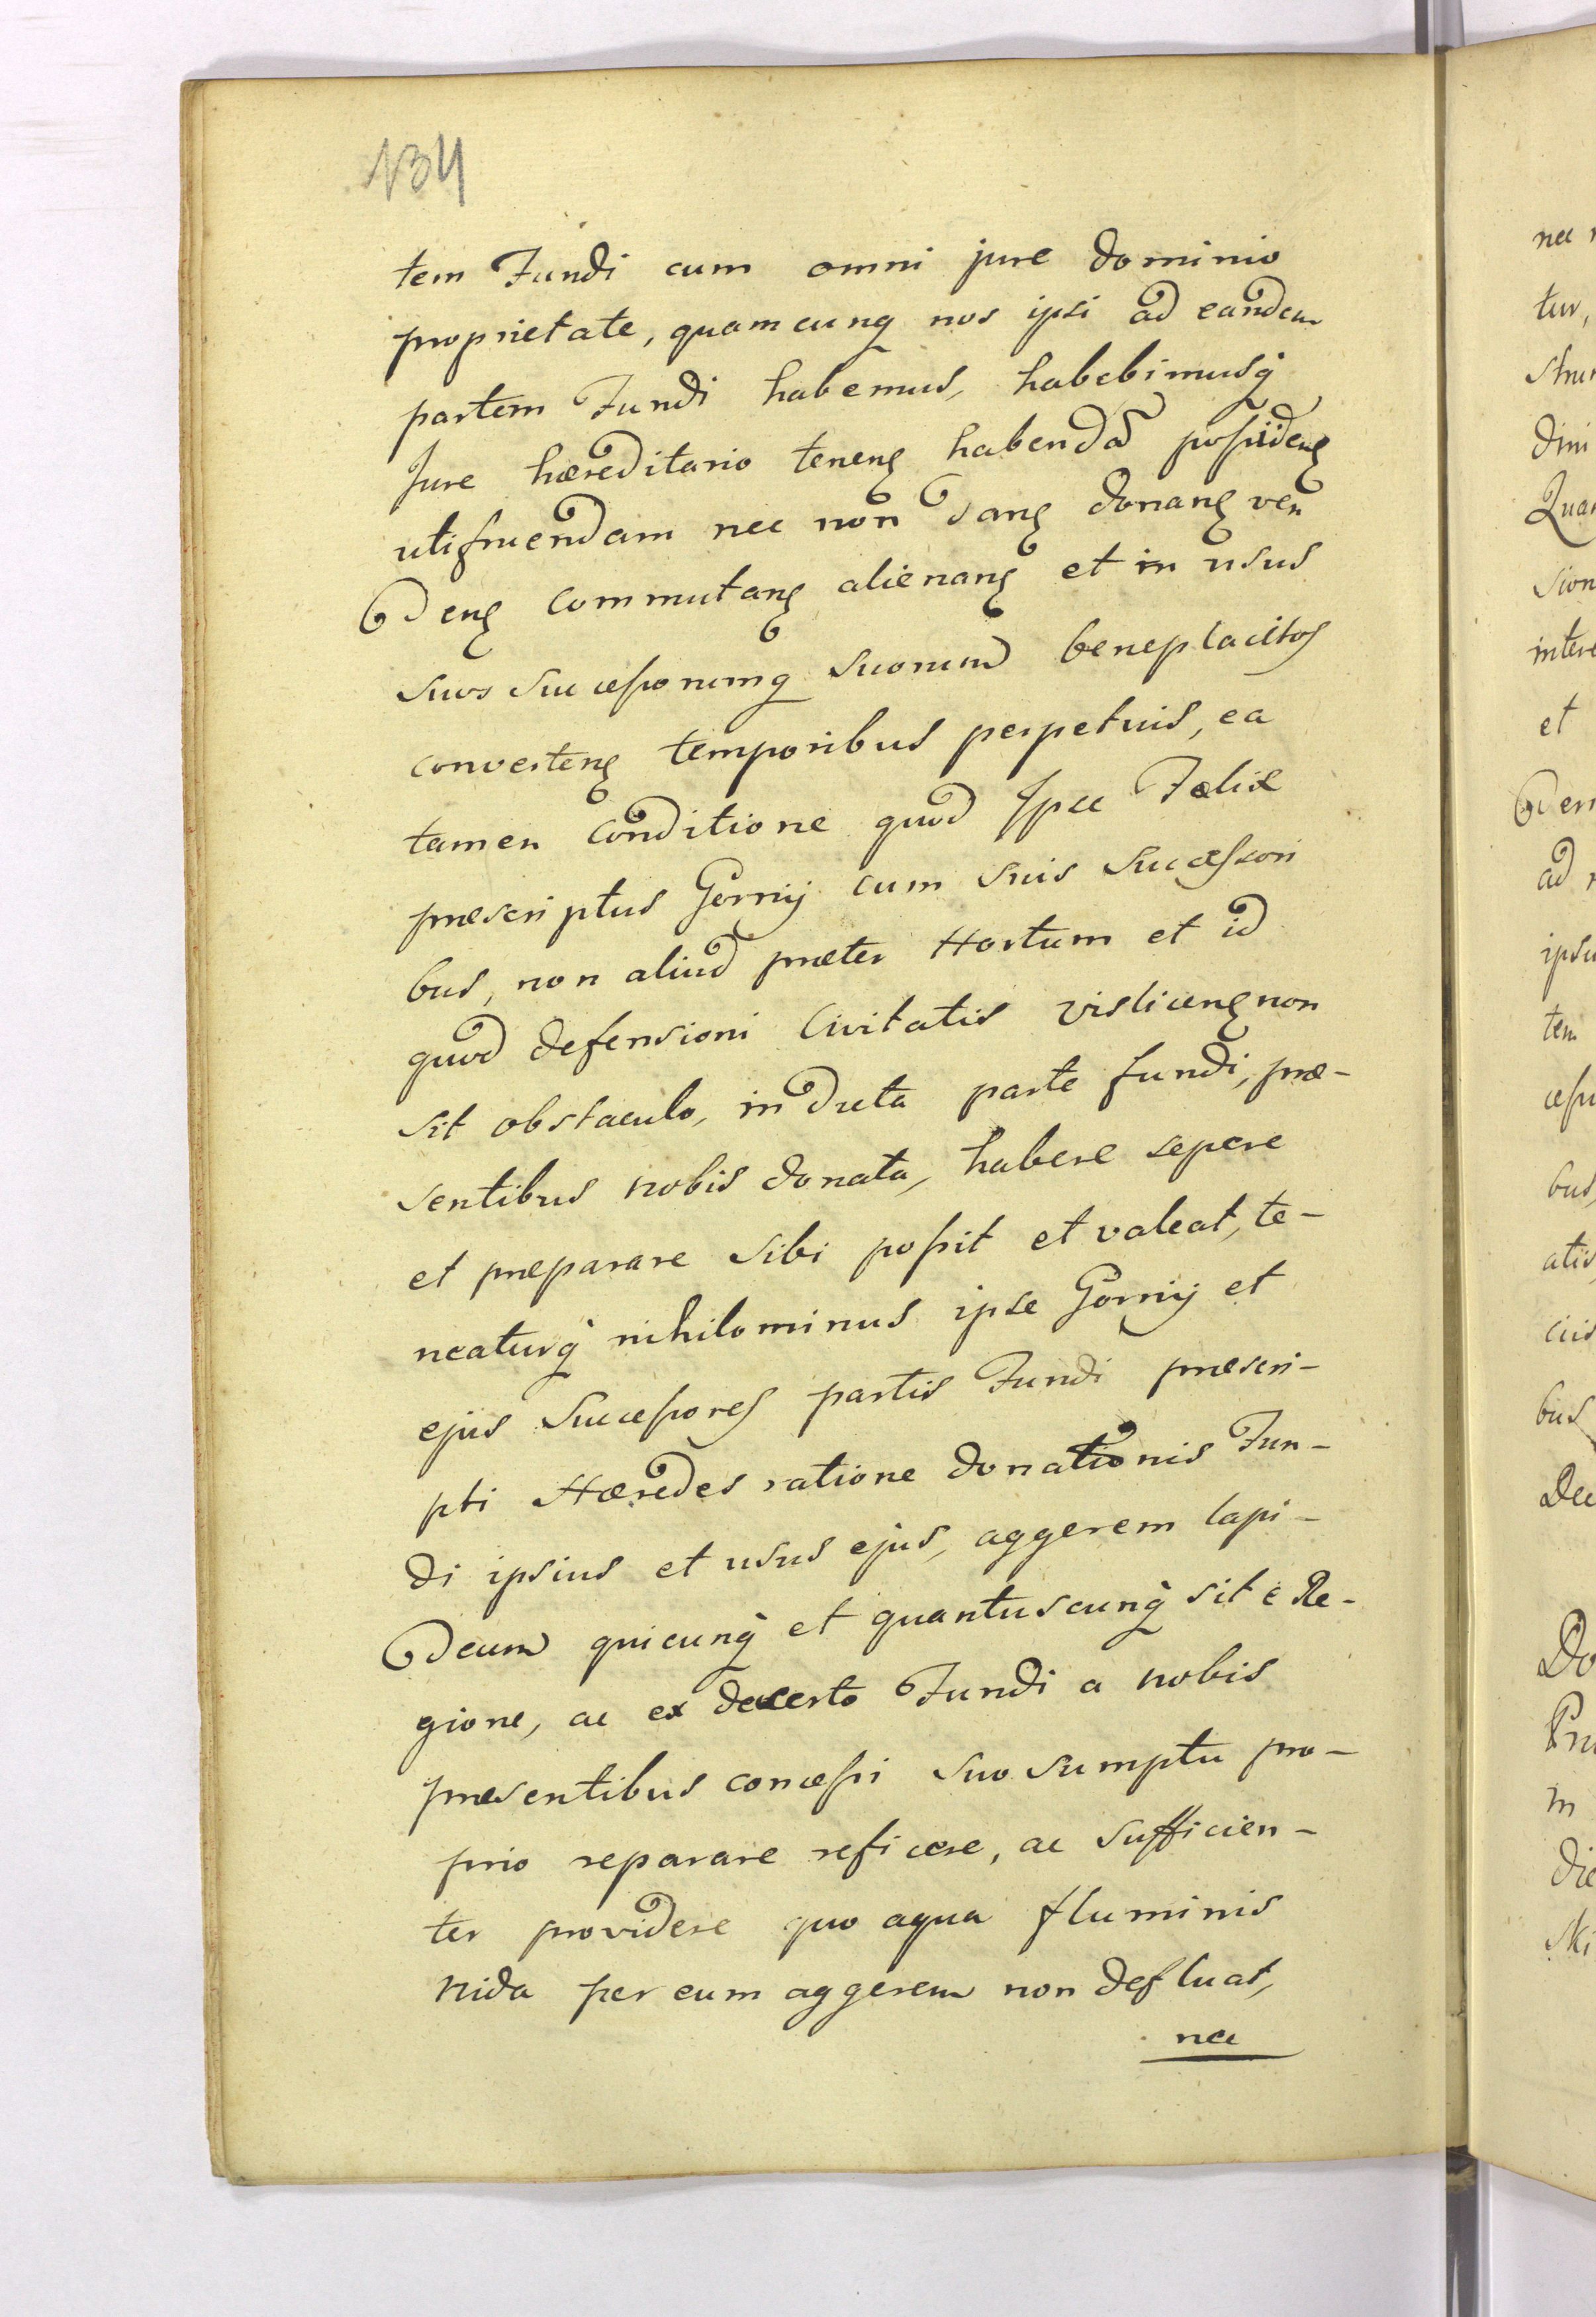 134
tem Fundi cum omni jure dominio
proprietate, quamcunq nos ipsi ad eandem
partem Fundi habemus, habebimusq
Jure hæreditario teneng habendã possideng
utifruendam nec non dang donang ven
deng commutang alienang et in usus
suos successorumq suorum beneplacitos
converteng temporibus perpetuis, ea
tamen conditione quod Ipse Fælix
præscriptus Gorny cum suis successori
bus, non aliud præter Hortum et id
quod defensioni Civitatis visliceng non
sit obstaculo, in dicta parte fundi, præ-
sentibus nobis donata, habere sepere
et præparare sibi possit et valeat, te-
neaturq nihilominus ipse Gorny et
ejus Successores partis Fundi præscri-
pti Hæredes ratione donationis Fun-
di ipsius et usus ejus, aggerem lapi-
deum quicunq et quantuscunq sit e Re-
gione, ac ex deserto Fundi a nobis
præsentibus concessi suo sumptu pro-
prio reparare reficere, ac sufficien-
ter providere quo aqua fluminis
Nida per eum aggerem non defluat,
nec
nec
tur,
dini
sion
et
ad
tem
bus,
atis
bus
Do
in
ski